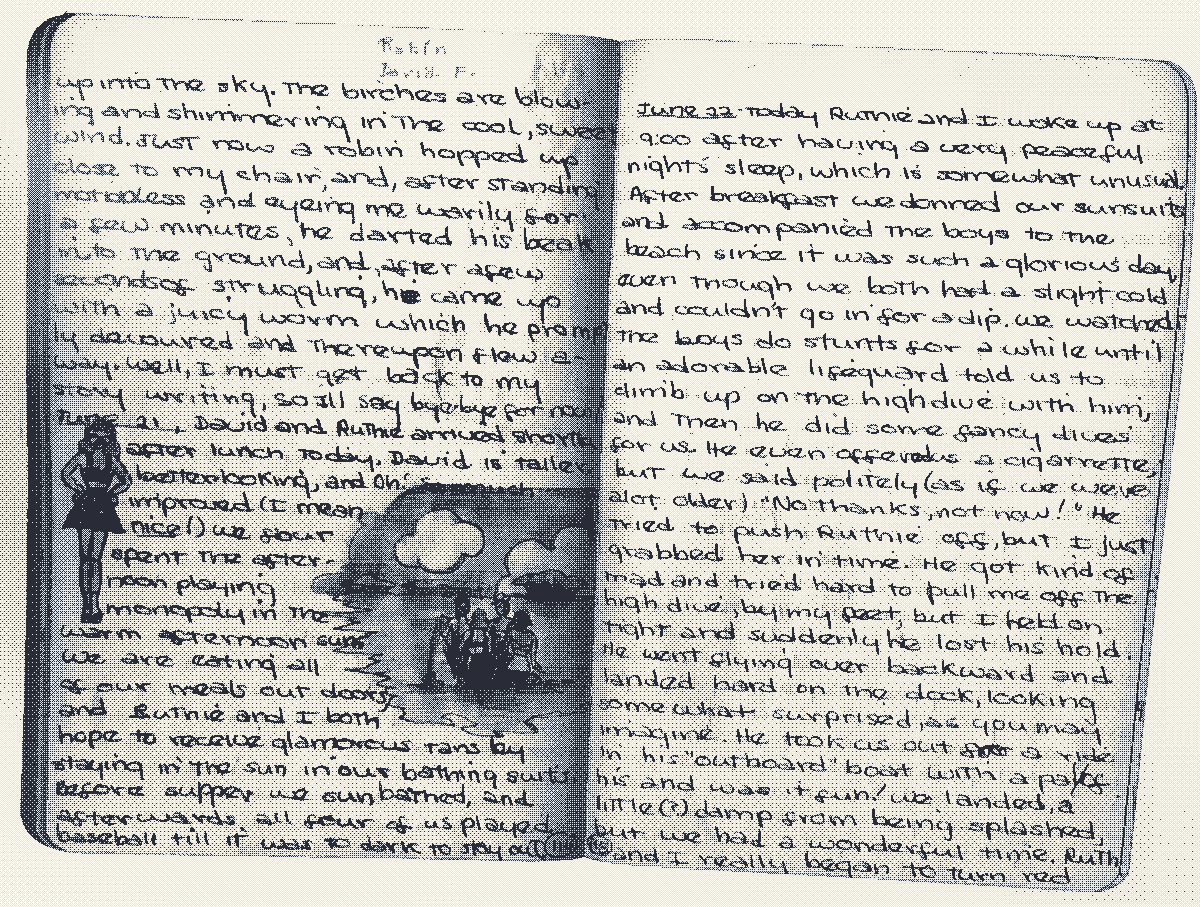 Robin
David. F.
up into the sky. The birches are blow-
ing and shimmering in the cool, sweet
wind. Just now a robin hopped up
close to my chair, and, after standing
motionless and eyeing me warily for
a few minutes, he darted his beak
into the ground, and, after a few
seconds of struggling, he came up
with a juicy worm which he prompt
ly devoured and thereupon flew a-
way. Well, I must get back to my
story writing, so I'll say bye-bye for now
June 21, David and Ruthie arrived shortly
after lunch today. David is taller
better-looking, and Oh! so much
improved (I mean
nice!) we four
spent the after-
noon playing
monopoly in the
warm afternoon sun
we are eating all
of our meals out doors
and Ruthie and I both
hope to receive glamorous tans by
staying in the sun in our bathing suits
Before supper we sunbathed, and
afterwards all four of us played
baseball till it was to dark to stay out
June 22 - Today Ruthie and I woke up at
9:00 after having a very peaceful
night's sleep, which is somewhat unusual
After breakfast we donned our sunsuits
and accompanied the boys to the
beach since it was such a glorious day,
even though we both had a slight cold
and couldn't go in for a dip. we watched
the boys do stunts for a while until
an adorable lifeguard told us to
climb up on the highdive with him,
and then he did some fancy dives
for us. He even offered us a cigarrette,
but we said politely (as if we were
alot older) "No thanks, not now!" He
tried to push Ruthie off, but I just
grabbed her in time. He got kind of
mad and tried hard to pull me off the
high dive, by my feet, but I held on
tight and suddenly he lost his hold.
He went flying over backward and
landed hard on the dock, looking
somewhat surprised, as you may
imagine. He took us out for a ride
in his "outboard" boat with a pal of
his and was it fun! we landed, a
little (?) damp from being splashed,
but we had a wonderful time. Ruth
and I really began to turn red